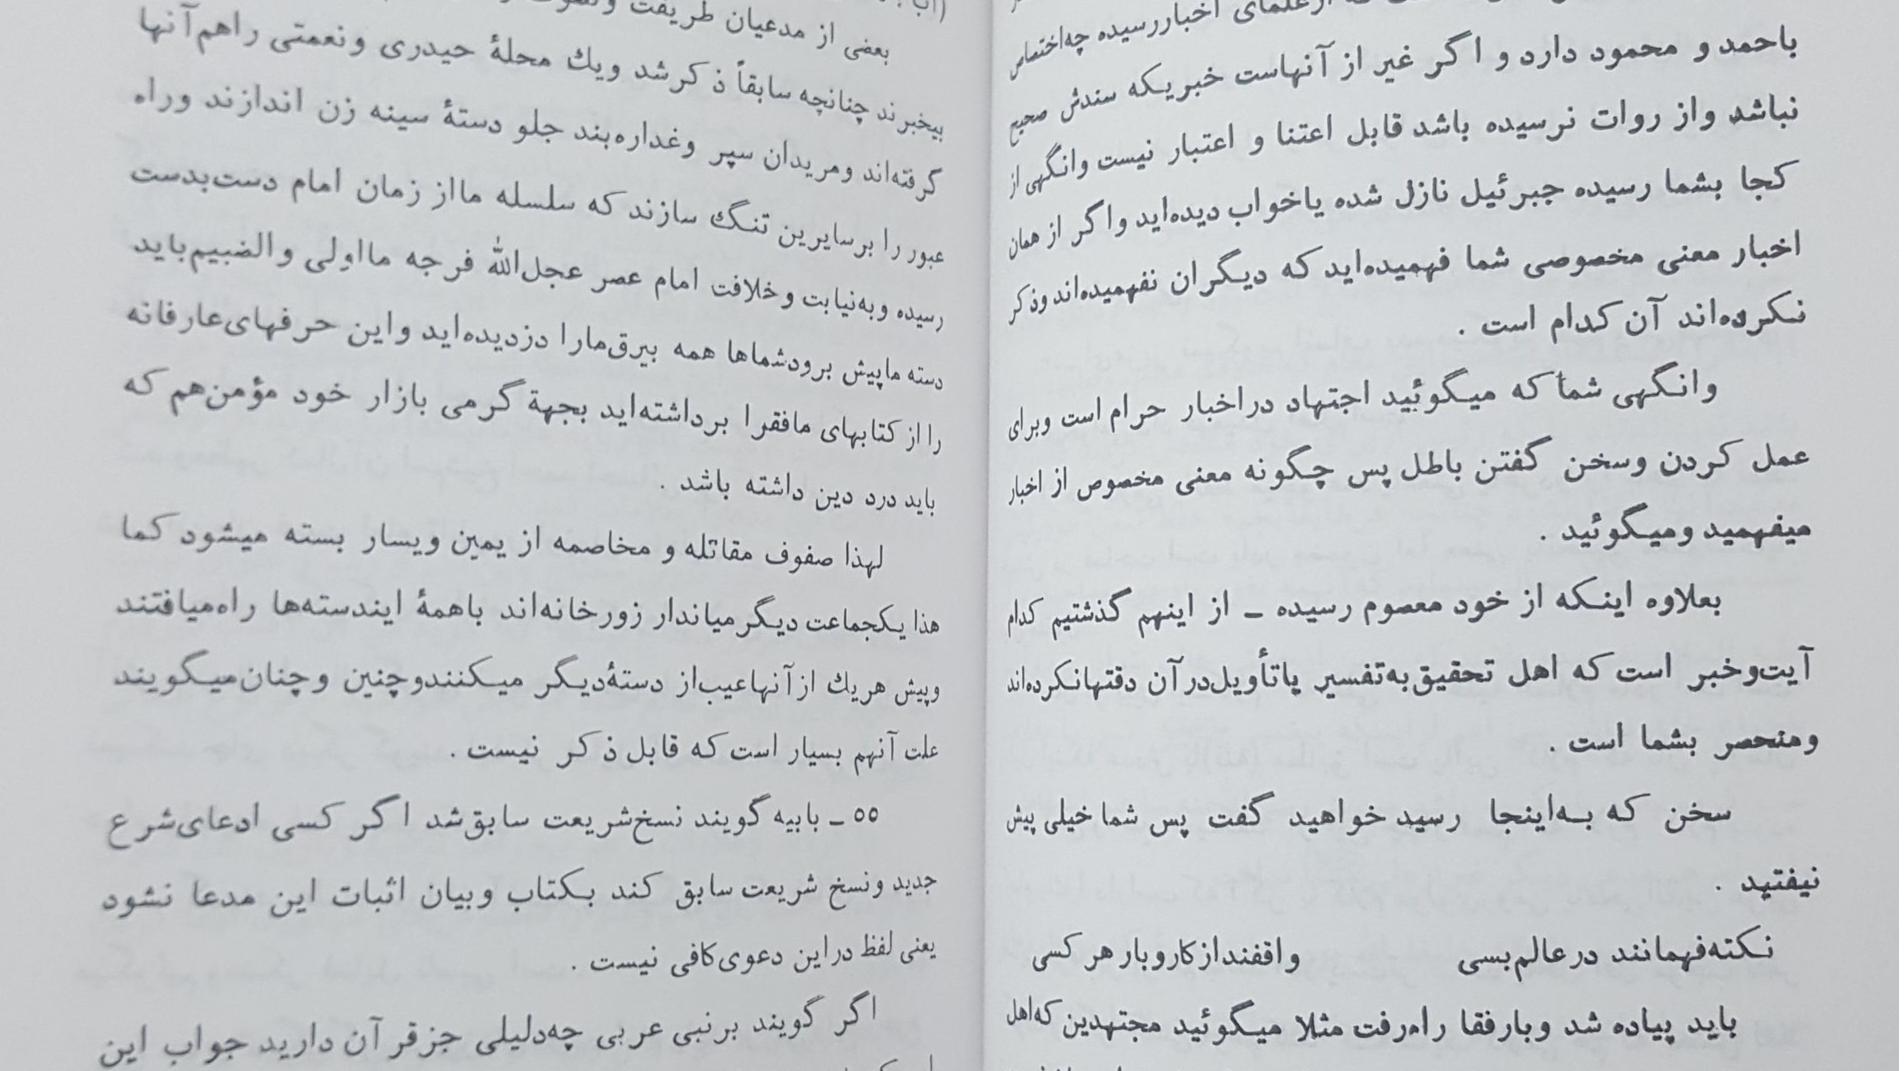 که از علمای اخبار رسیده چه اختصاص
باحمد و محمود دارد و اگر غیر از آنهاست خبریکه سندش صحیح
نباشد واز روات نرسیده باشد قابل اعتنا و اعتبار نیست وانگهی از
کجا بشما رسیده جبرئیل نازل شده یاخواب دیده‌اید واگر از همان
اخبار معنی مخصوصی شما فهمیده‌اید که دیگران نفهمیده‌اند وذکر
نکرده‌اند آن کدام است .
وانگهی شما که میگوئید اجتهاد دراخبار حرام است وبرای
عمل کردن وسخن گفتن باطل پس چگونه معنی مخصوص از اخبار
میفهمید ومیگوئید .
بعلاوه اینکه از خود معصوم رسیده ـ از اینهم گذشتیم کدام
آیت‌وخبر است که اهل تحقیق به‌تفسیر یاتأویل‌درآن دقتهانکرده‌اند
ومنحصر بشما است .
سخن که به‌اینجا رسید خواهید گفت پس شما خیلی پیش
نیفتید .
نکته‌فهمانند درعالم‌بسی واقفندازکاروبارهرکسی
باید پیاده شد وبارفقا راه‌رفت مثلا میگوئید مجتهدین که‌اهل
بعضی از مدعیان طریقت
بیخبرند چنانچه سابقاً ذکرشد ویك محلهٔ حیدری ونعمتی راهم‌آنها
گرفته‌اند ومریدان سپر وغداره‌بند جلو دستهٔ سینه زن اندازند وراه
عبور را برسایرین تنگ سازند که سلسله مااز زمان امام دست‌بدست
رسیده وبه‌نیابت وخلافت امام عصر عجل‌الله فرجه مااولی والضبیم‌باید
دسته ماپیش برودشماها همه بیرق‌مارا دزدیده‌اید واین حرفهای‌عارفانه
را از کتابهای مافقرا برداشته‌اید بجهة گرمی بازار خود مؤمن‌هم که
باید درد دین داشته باشد .
لهذا صفوف مقاتله و مخاصمه از یمین ویسار بسته میشود کما
هذا یکجماعت دیگرمیاندار زورخانه‌اند باهمهٔ ایندسته‌ها راه‌میافتند
وپیش هریك ازآنهاعیب‌از دستهٔ‌دیگر میکنندوچنین وچنان‌میگویند
علت آنهم بسیار است که قابل ذکر نیست .
۵۵ ـ بابیه گویند نسخ‌شریعت سابق‌شد اگر کسی ادعای‌شرع
جدید ونسخ شریعت سابق کند بکتاب وبیان اثبات این مدعا نشود
یعنی لفظ دراین دعوی‌کافی نیست .
اگر گویند برنبی عربی چه‌دلیلی جزقرآن دارید جواب این